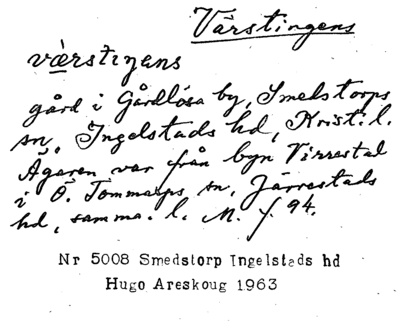 Värstingens
vèrstiŋens
gård i Gårdlösa by, Smedstorps
sn, Ingelstads hd, Krist. l.
Ägaren var från byn Virrestad
i Ö. Tommarps sn, Järrestads
hd, samma. l. M. f. 94.
Nr 5008 Smedstorp Ingelstads hd
Hugo Areskoug 1963